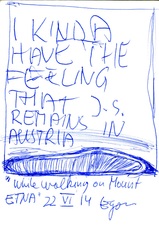 I KINDA
HAVE THE
FEELING
THAT J.S.
REMAINS IN
AUSTRIA
"While walking on Mount
ETNA" 22 VI 14